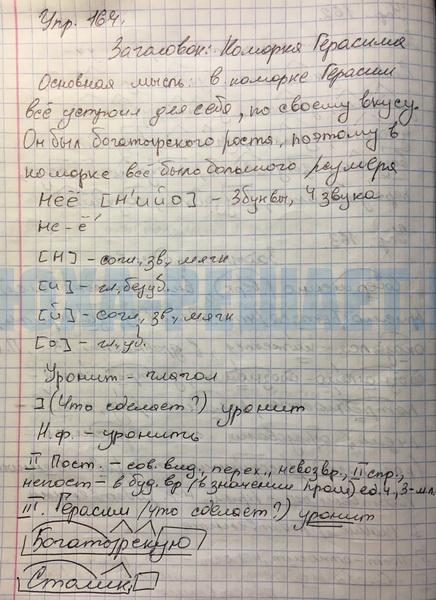 Упр. 164.
Заголовок: Коморка Герасима
Основная мысль: в коморке Герасим
всё устроил для себя, по своему вкусу.
Он был богатырского роста, поэтому в
коморке всё было большого размера
Неё [н'ийо] - 3 буквы, 4 звука
не-ё
[н] - согл, зв, мягк
[и] - гл, безуд.
[й] - согл, зв, мягк
[о] - гл, уд.
Уронит - глагол
I (Что сделает?) уронит
Н.ф. - уронить
II. Пост. - сов. вид., перех., невозвр., II спр.,
непост - в буд. вр (в значении прош) ед.ч., 3-м л.
III. Герасим (что сделает?) уронит
Богатырскую
Столик